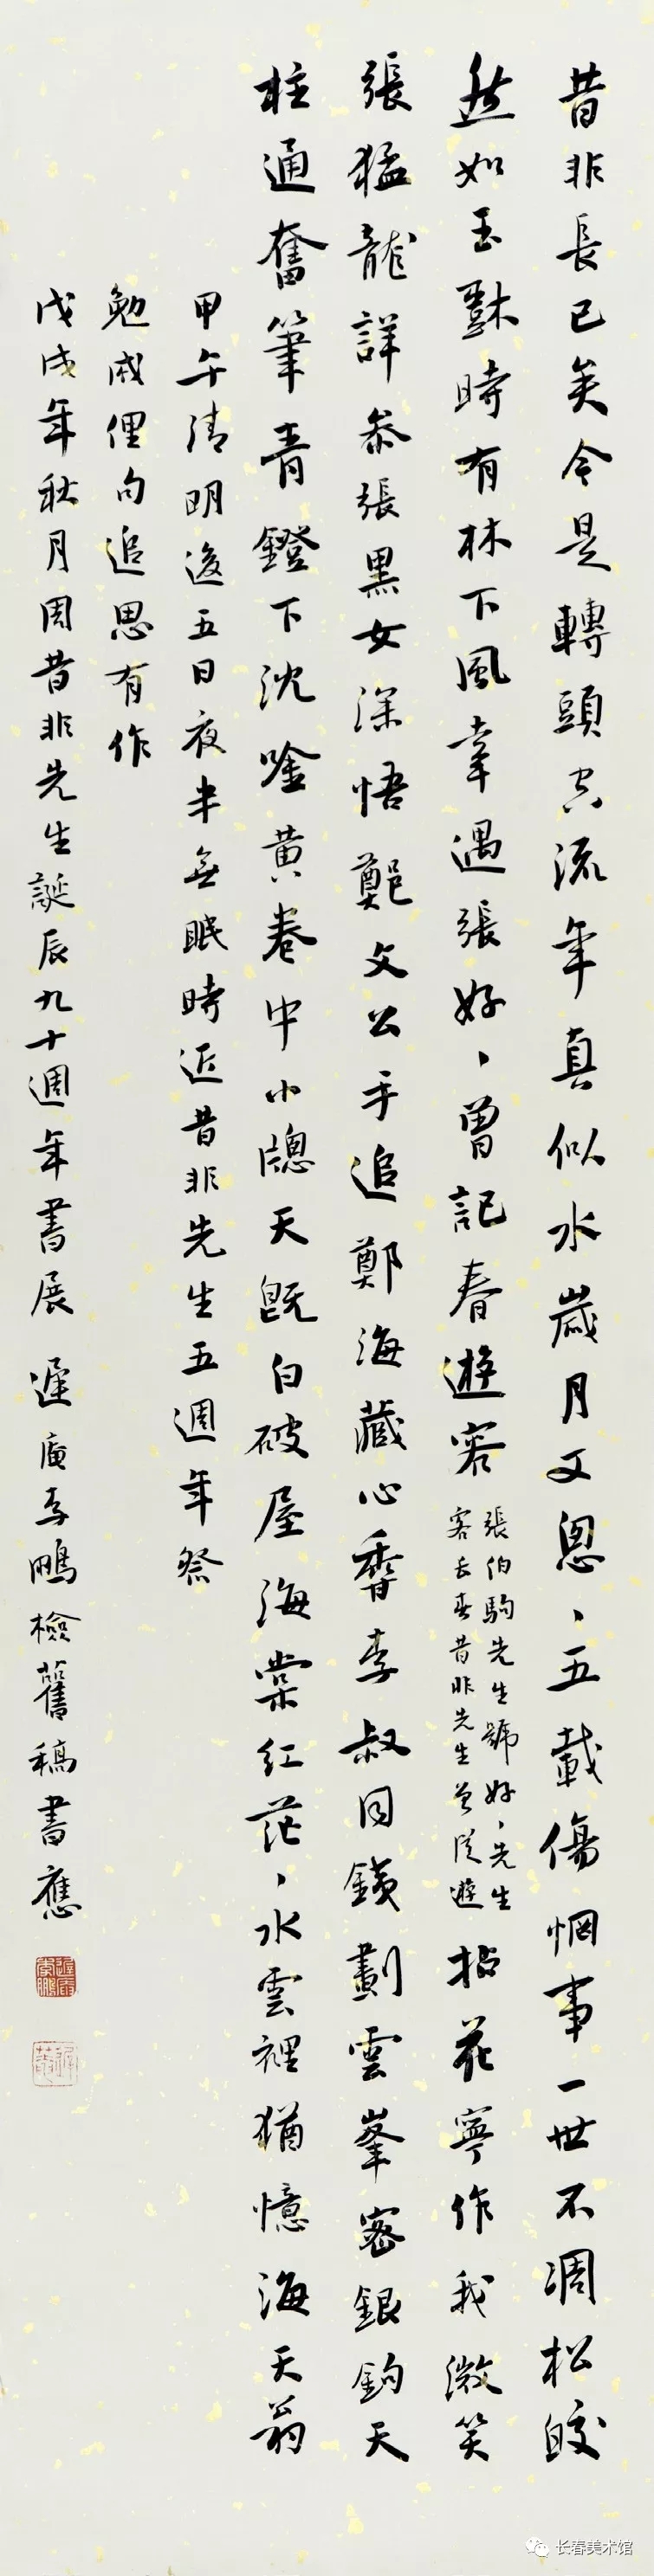 昔非長已矣今是轉頭空流年真似水歲月又悤、五載傷惘事一世不凋松皎
然如玉樹時有林下風幸遇張好、曾記春遊容
張伯駒先生號好、先生
客長春昔非先生曾從遊
拈花寧作我微笑
張猛龍詳參張黑女深悟鄭文公手追鄭海藏心香李叔同鐵劃雲峯密銀鉤天
柱通奮筆青鐙下沈唫黃卷中小牕天既白破屋海棠紅茫、水雲裡猶憶海天翁
甲午清明後五日夜半無眠時近昔非先生五週年祭
勉成俚句追思有作
戊戌年秋月周昔非先生誕辰九十週年書展 遲庵李鵬檢舊稿書應
长春美术馆